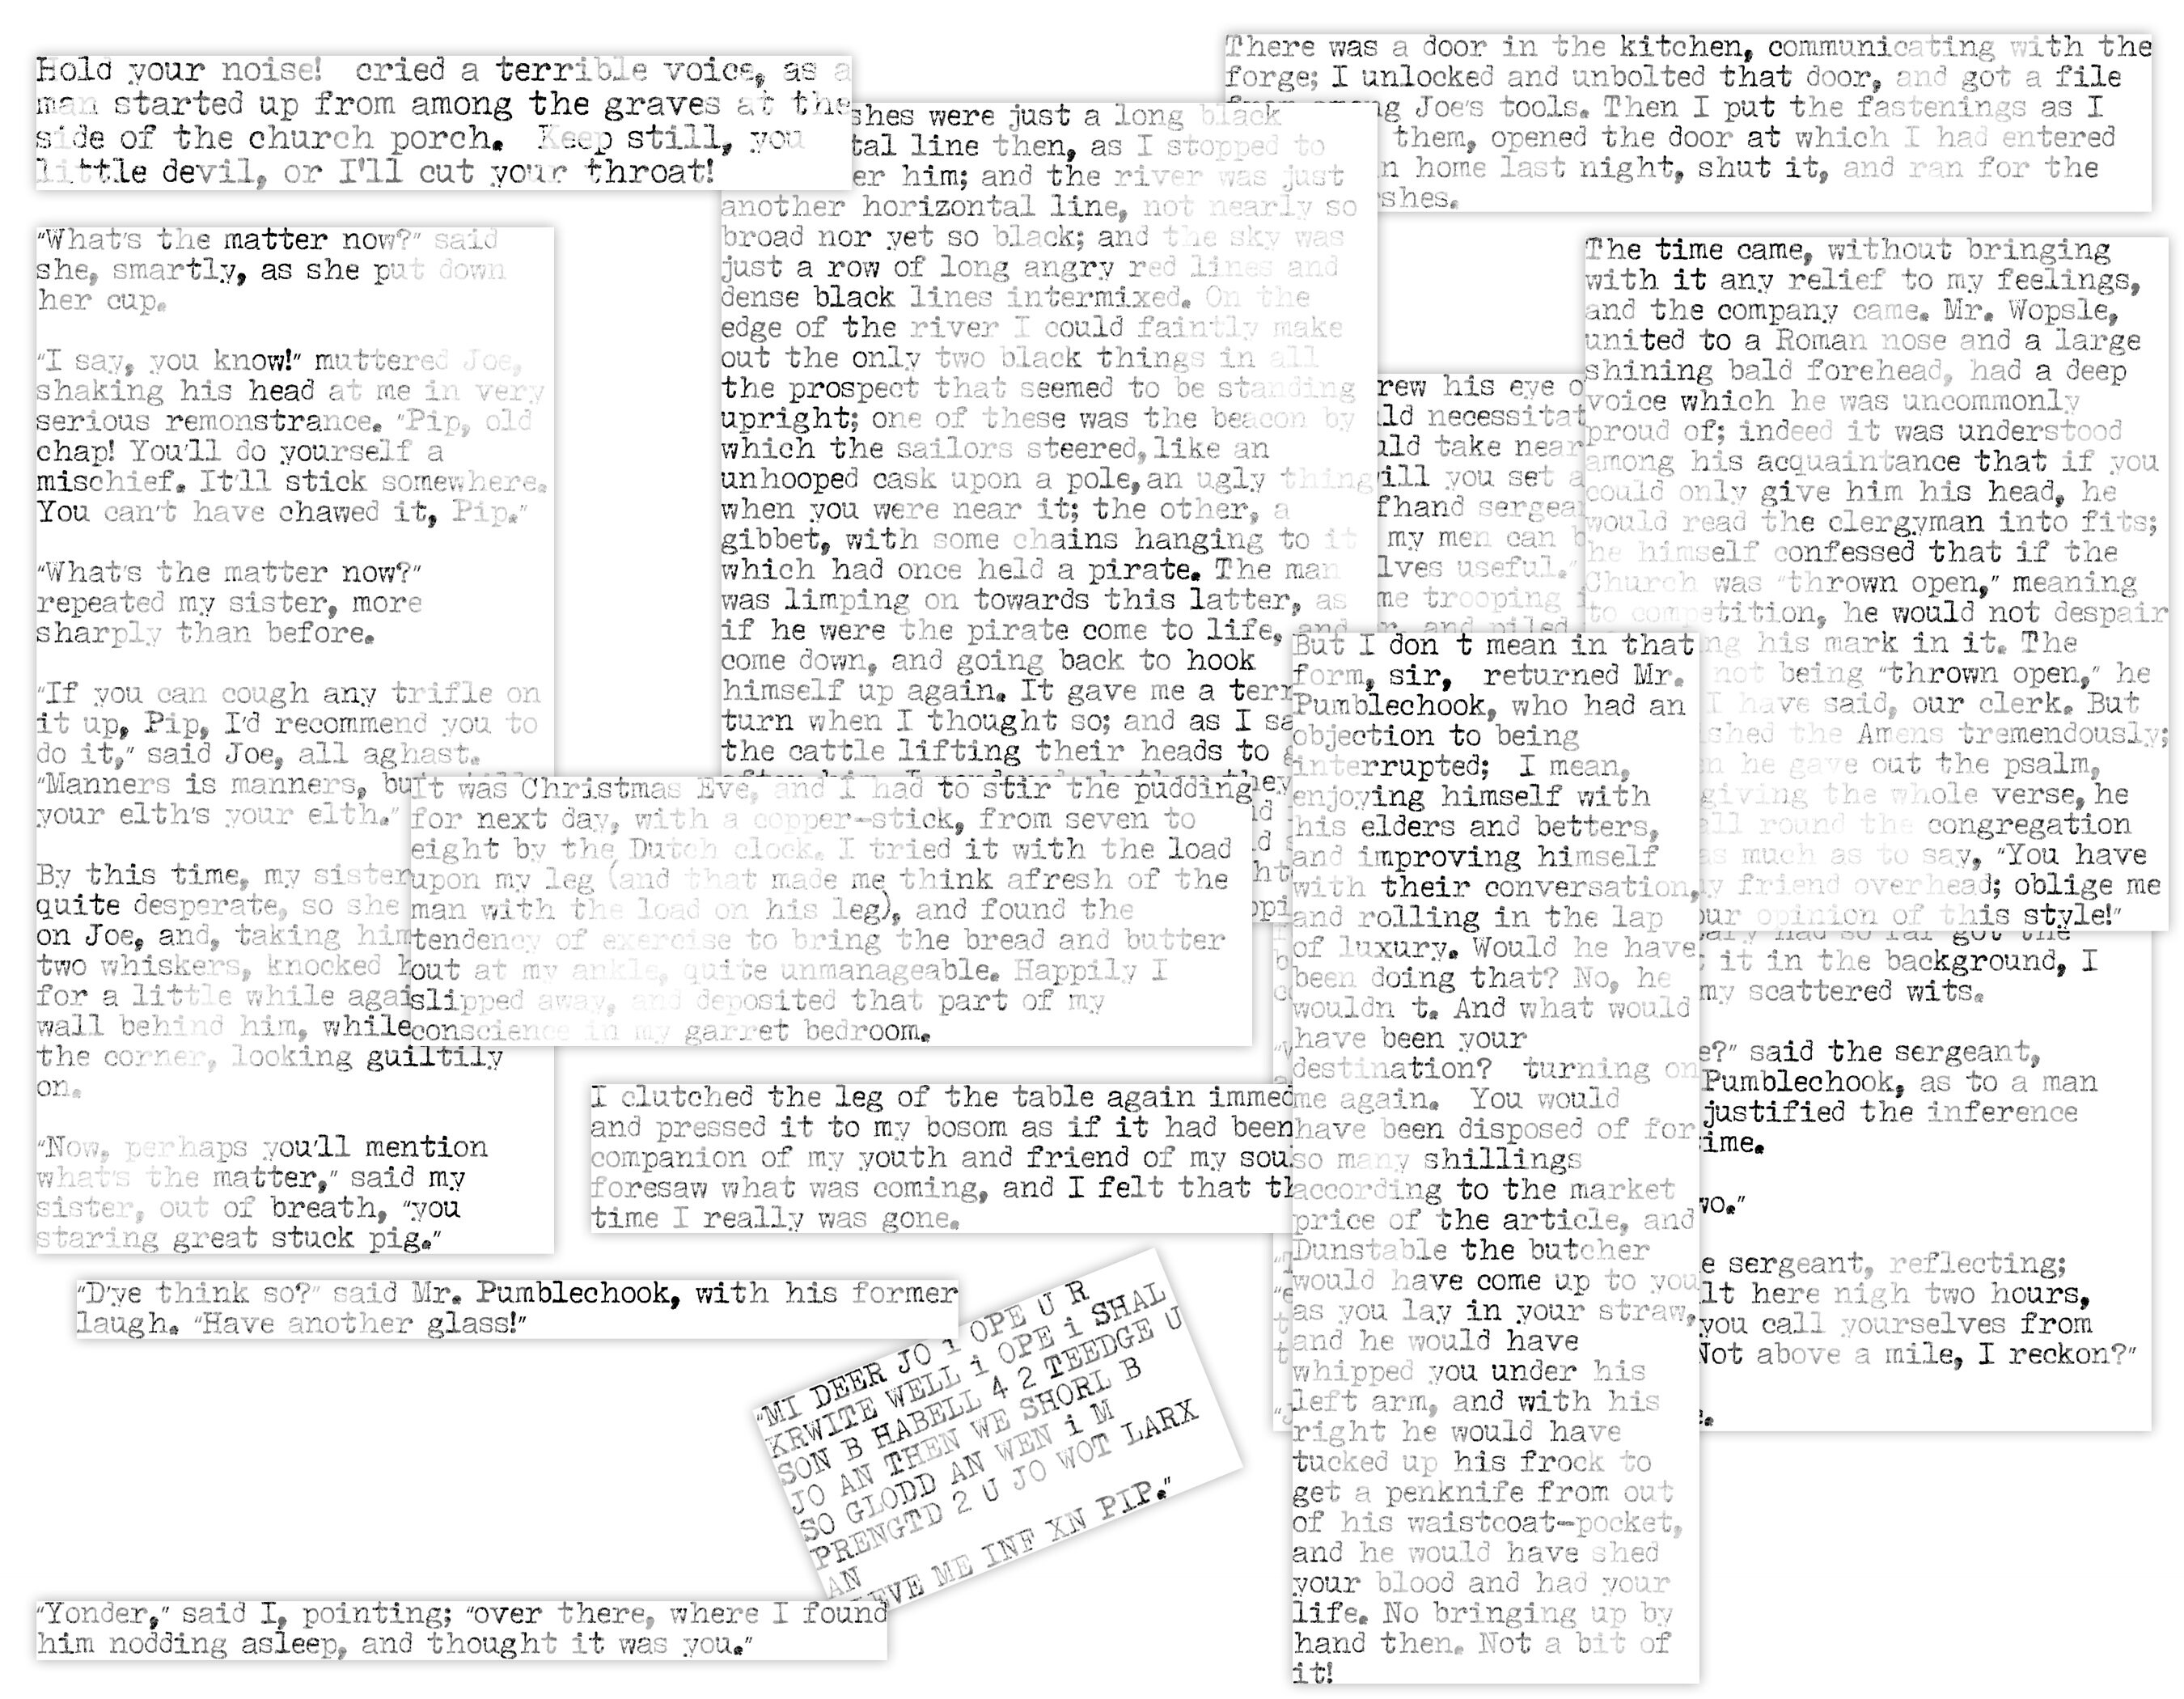 Hold your noise! cried a terrible voice, as a
man started up from among the graves at the
side of the church porch. Keep still, you
little devil, or I'll cut your throat!
There was a door in the kitchen, communicating with the
forge; I unlocked and unbolted that door, and got a file
Joe's tools. Then I put the fastenings as I
them, opened the door at which I had entered
home last night, shut it, and ran for the
were just a long black
line then, as I stopped to
him; and the river was just
another horizontal line, not nearly so
broad nor yet so black; and the sky was
just a row of long angry red lines and
dense black lines intermixed. On the
edge of the river I could faintly make
out the only two black things in all
the prospect that seemed to be standing
upright; one of these was the beacon by
which the sailors steered, like an
unhooped cask upon a pole, an ugly thing
when you were near it; the other, a
gibbet, with some chains hanging to it
which had once held a pirate. The man
was limping on towards this latter, as
if he were the pirate come to life, and
come down, and going back to hook
himself up again. It gave me a
turn when I thought so; and as I
the cattle lifting their heads to
"What's the matter now?" said
she, smartly, as she put down
her cup.
"I say, you know!" muttered Joe,
shaking his head at me in very
serious remonstrance. "Pip, old
chap! You'll do yourself a
mischief. It'll stick somewhere.
You can't have chawed it, Pip."
"What's the matter now?"
repeated my sister, more
sharply than before.
"If you can cough any trifle on
it up, Pip, I'd recommend you to
do it," said Joe, all aghast.
"Manners is manners,
your elth's your elth."
By this time, my sister
quite desperate, so she
on Joe, and, taking him
two whiskers, knocked
for a little while
wall behind him, while
the corner, looking guiltily
on.
"Now, perhaps you'll mention
what's the matter," said my
sister, out of breath, "you
staring great stuck pig."
The time came, without bringing
with it any relief to my feelings,
and the company came. Mr. Wopsle,
united to a Roman nose and a large
shining bald forehead, had a deep
voice which he was uncommonly
proud of; indeed it was understood
among his acquaintance that if you
could only give him his head, he
would read the clergyman into fits;
he himself confessed that if the
Church was "thrown open," meaning
to competition, he would not despair
his mark in it. The
not being "thrown open," he
I have said, our clerk. But
the Amens tremendously;
he gave out the psalm,
giving the whole verse, he
all round the congregation
as much as to say, "You have
friend overhead; oblige me
opinion of this style!"
his eye
necessitat
take near
you set
sergea
my men can
useful."
trooping
and piled
But I don t mean in that
form, sir, returned Mr.
Pumblechook, who had an
objection to being
interrupted; I mean,
enjoying himself with
his elders and betters,
and improving himself
with their conversation,
and rolling in the lap
of luxury. Would he have
been doing that? No, he
wouldn t. And what would
have been your
destination? turning on
me again. You would
have been disposed of for
so many shillings
according to the market
price of the article, and
Dunstable the butcher
would have come up to you
as you lay in your straw,
and he would have
whipped you under his
left arm, and with his
right he would have
tucked up his frock to
get a penknife from out
of his waistcoat-pocket,
and he would have shed
your blood and had your
life. No bringing up by
hand then. Not a bit of
it!
It was Christmas Eve, and I had to stir the pudding
for next day, with a copper-stick, from seven to
eight by the Dutch clock. I tried it with the load
upon my leg (and that made me think afresh of the
man with the load on his leg), and found the
tendency of exercise to bring the bread and butter
out at my ankle, quite unmanageable. Happily I
slipped away, and deposited that part of my
conscience in my garret bedroom.
it in the background, I
my scattered wits.
said the sergeant,
Pumblechook, as to a man
justified the inference
sergeant, reflecting;
here nigh two hours,
you call yourselves from
Not above a mile, I reckon?"
I clutched the leg of the table again immed
and pressed it to my bosom as if it had been
companion of my youth and friend of my
foresaw what was coming, and I felt that
time I really was gone.
"D'ye think so?" said Mr. Pumblechook, with his former
laugh. "Have another glass!"
"MI DEER JO i OPE U R
KRWITE WELL i OPE i SHAL
SON B HABELL 4 2 TEEDGE U
JO AN THEN WE SHORL B
SO GLODD AN WEN i M
PRENGTD 2 U JO WOT LARX
AN
EVE ME INF XN PIP."
"Yonder," said I, pointing; "over there, where I found
him nodding asleep, and thought it was you."